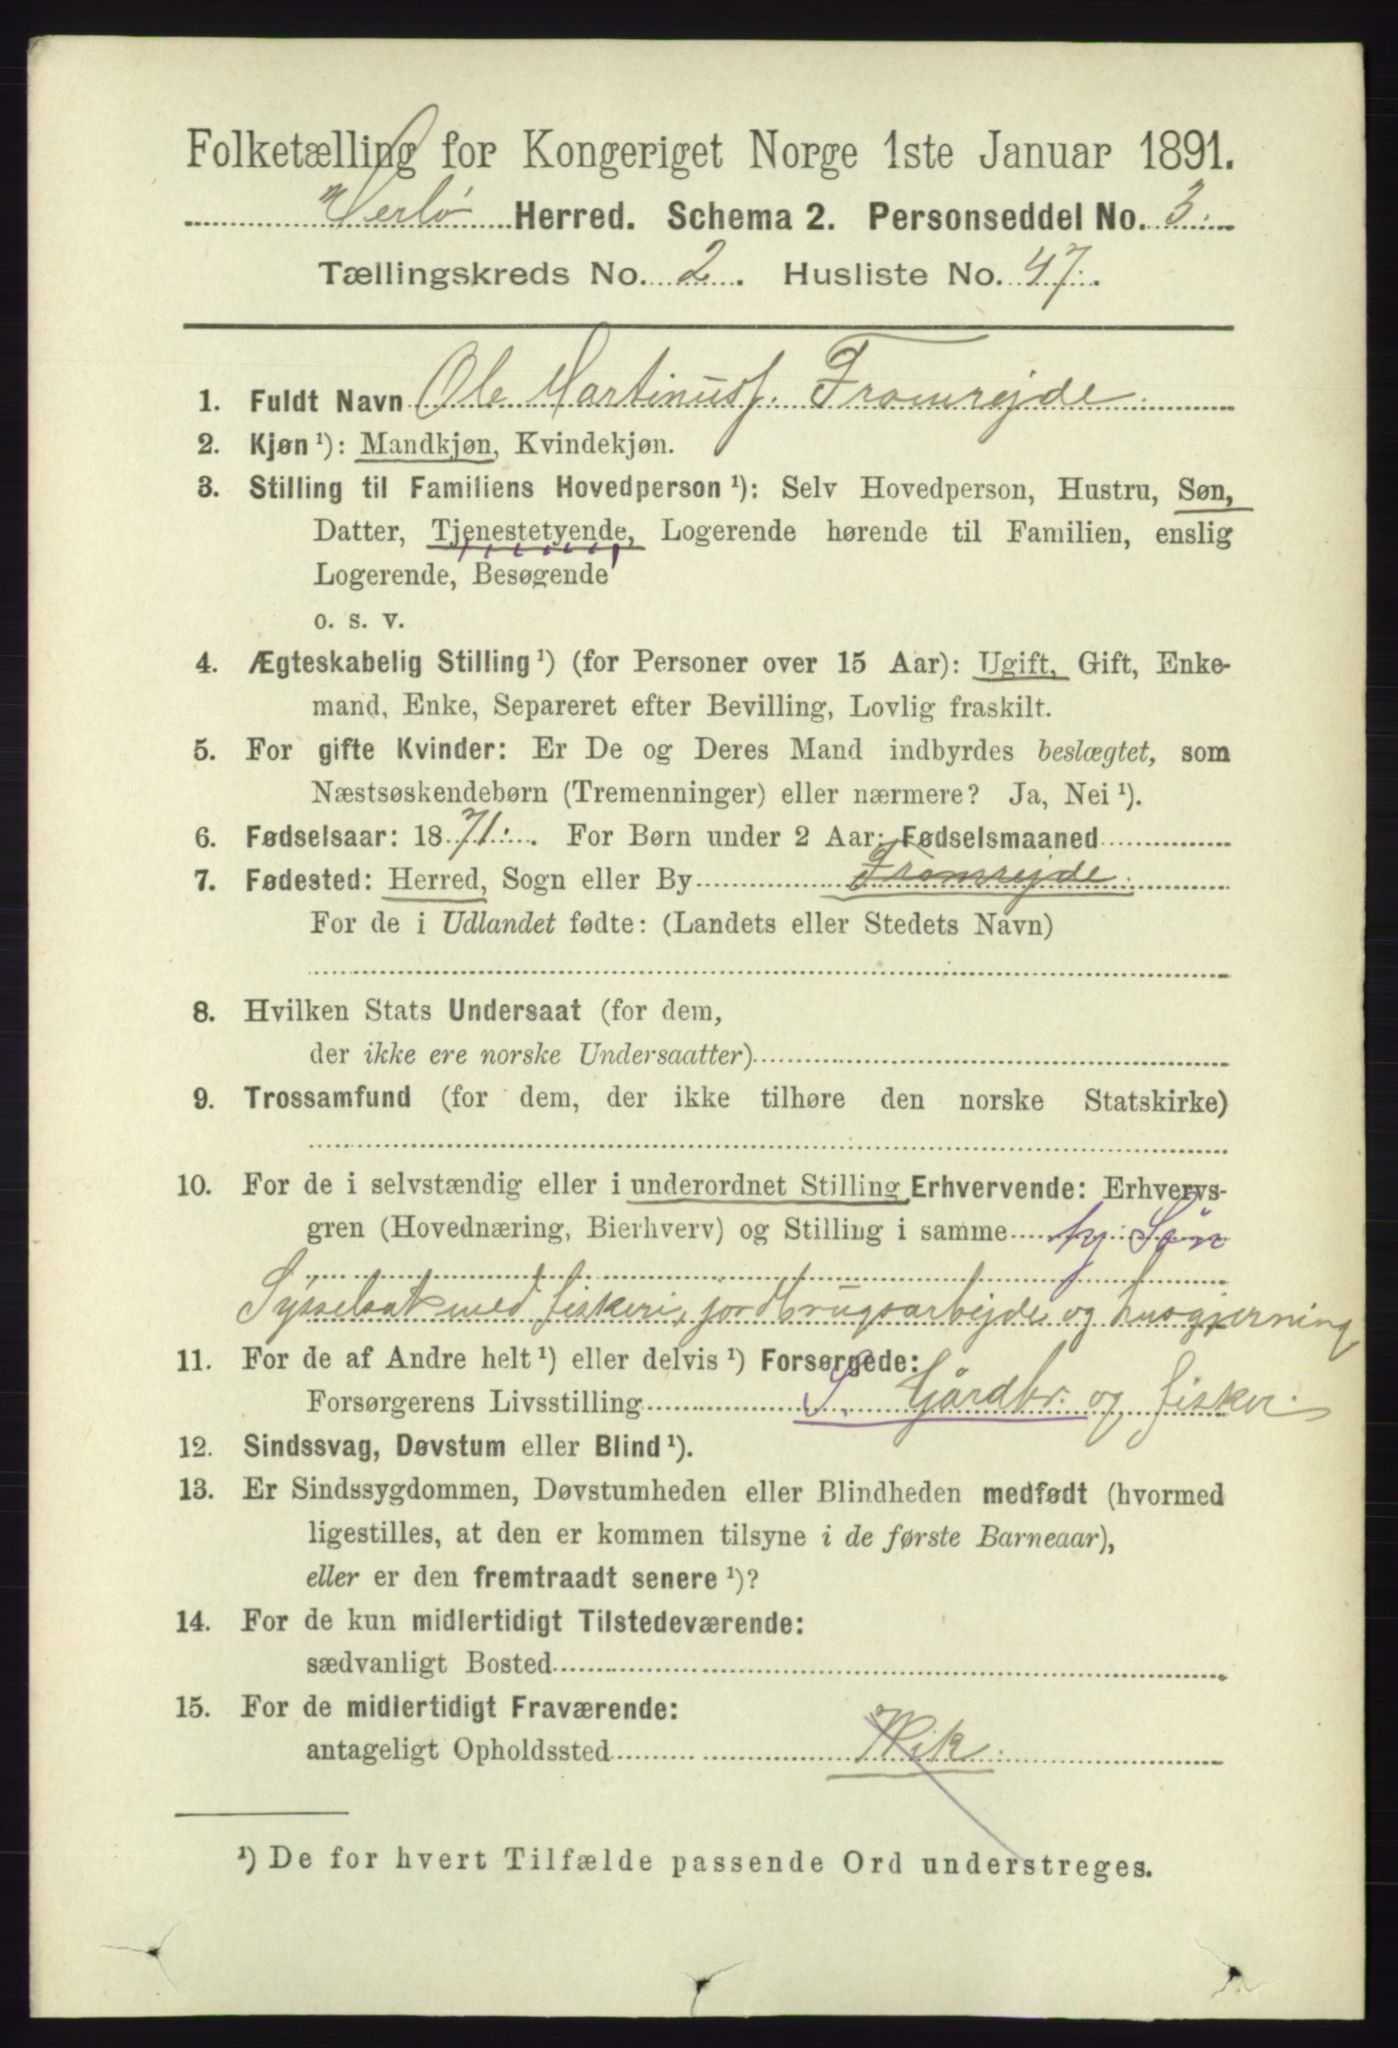 Folketælling for Kongeriget Norge 1ste Januar 1891.
Herlø Herred. Schema 2. Personseddel No. 3.
Tællingskreds No. 2. Husliste No. 47.
1. Fuldt Navn Ole Martinusf. Fromrejde.
2. Kjøn ¹): Mandkjøn, Kvindekjøn.
3. Stilling til Familiens Hovedperson ¹): Selv Hovedperson, Hustru, Søn,
Datter, Tjenestetyende, Logerende hørende til Familien, enslig
Logerende, Besøgende
o. s. v.
4. Ægteskabelig Stilling ¹) (for Personer over 15 Aar): Ugift, Gift, Enke-
mand, Enke, Separeret efter Bevilling, Lovlig fraskilt.
5. For gifte Kvinder: Er De og Deres Mand indbyrdes beslægtet, som
Næstsøskendebørn (Tremenninger) eller nærmere? Ja, Nei ¹).
6. Fødselsaar: 1871. For Børn under 2 Aar: Fødselsmaaned
7. Fødested: Herred, Sogn eller By Fromrejde.
For de i Udlandet fødte: (Landets eller Stedets Navn)
8. Hvilken Stats Undersaat (for dem,
der ikke ere norske Undersaatter)
9. Trossamfund (for dem, der ikke tilhøre den norske Statskirke)
10. For de i selvstændig eller i underordnet Stilling Erhvervende: Erhvervs-
gren (Hovednæring, Bierhverv) og Stilling i samme hj. Søn
Sysselsat med fiskeri, jordbrugsarbejde og husgjerning
11. For de af Andre helt ¹) eller delvis ¹) Forsørgede:
Forsørgerens Livsstilling S. Gårdbr. og fisker.
12. Sindssvag, Døvstum eller Blind ¹).
13. Er Sindssygdommen, Døvstumheden eller Blindheden medfødt (hvormed
ligestilles, at den er kommen tilsyne i de første Barneaar),
eller er den fremtraadt senere ¹)?
14. For de kun midlertidigt Tilstedeværende:
sædvanligt Bosted
15. For de midlertidigt Fraværende:
antageligt Opholdssted Wik.
¹) De for hvert Tilfælde passende Ord understreges.